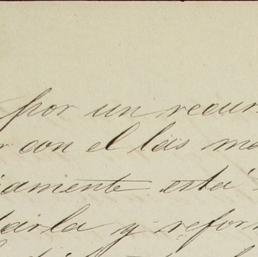 por un recur
r con el las me
iamente esta
tarla y refor